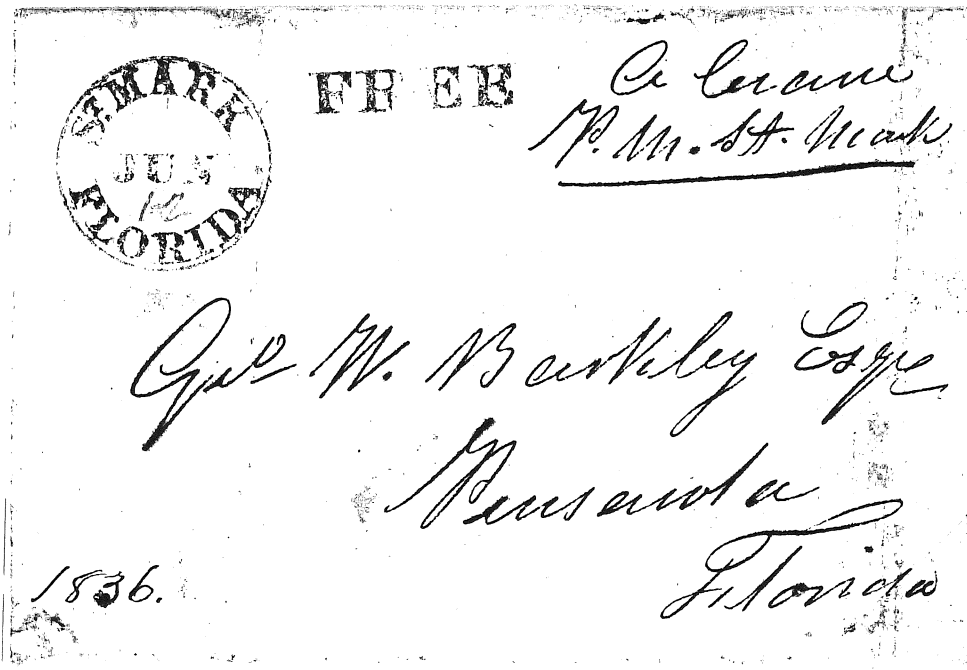 ST. MARK
JUN
12
FLORIDA
FREE
A Crane
P. M. St. Mark
Geo W. Barkley Esqe
Pensacola
Florida
1836.